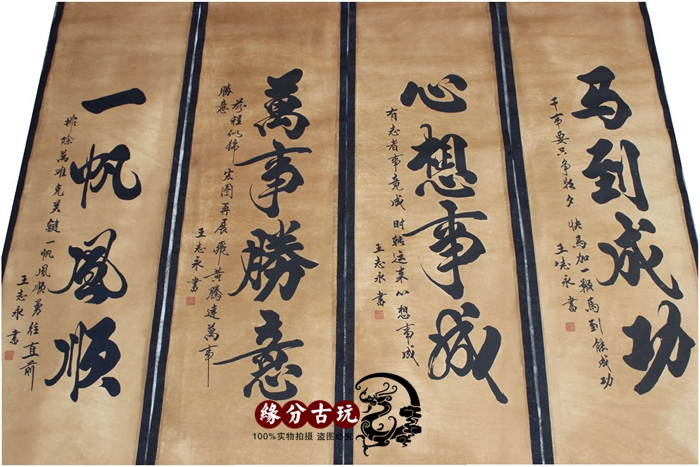 马到成功
干事要只争朝夕 快馬加一鞭馬到能成功
王志永書
心想事成
有志者事竟成 时转运来心想事成
王志永書
萬事勝意
前程似锦 宏图再展 飛黄腾達萬事
勝意
王志永書
一帆風順
排除萬难克关键 一帆風順勇往直前
王志永書
缘分古玩
100%实物拍摄 盗图必究